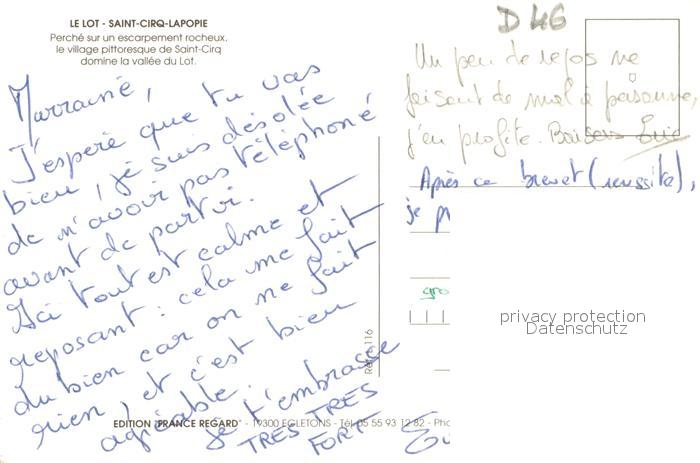 LE LOT - SAINT-CIRQ-LAPOPIE
Perché sur un escarpement rocheux,
le village pittoresque de Saint-Cirq
domine la vallée du Lot.
Marraine,
J'espère que tu vas
bien, je suis désolée
de n'avoir pas téléphoné
avant de partir.
Ici tout est calme et
reposant : cela me fait
du bien car on ne fait
rien, et c'est bien
agréable.
Je t'embrasse
TRES TRES
FORT
EDITION "FRANCE REGARD" - 19300 EGLETONS - Tél. 05 55 93 12 82 - Pho
116
D 46
Un peu de repos ne
faisant de mal à personne,
j'en profite. Baisers
Après ce brevet (réussite),
je p
gro
privacy protection
Datenschutz